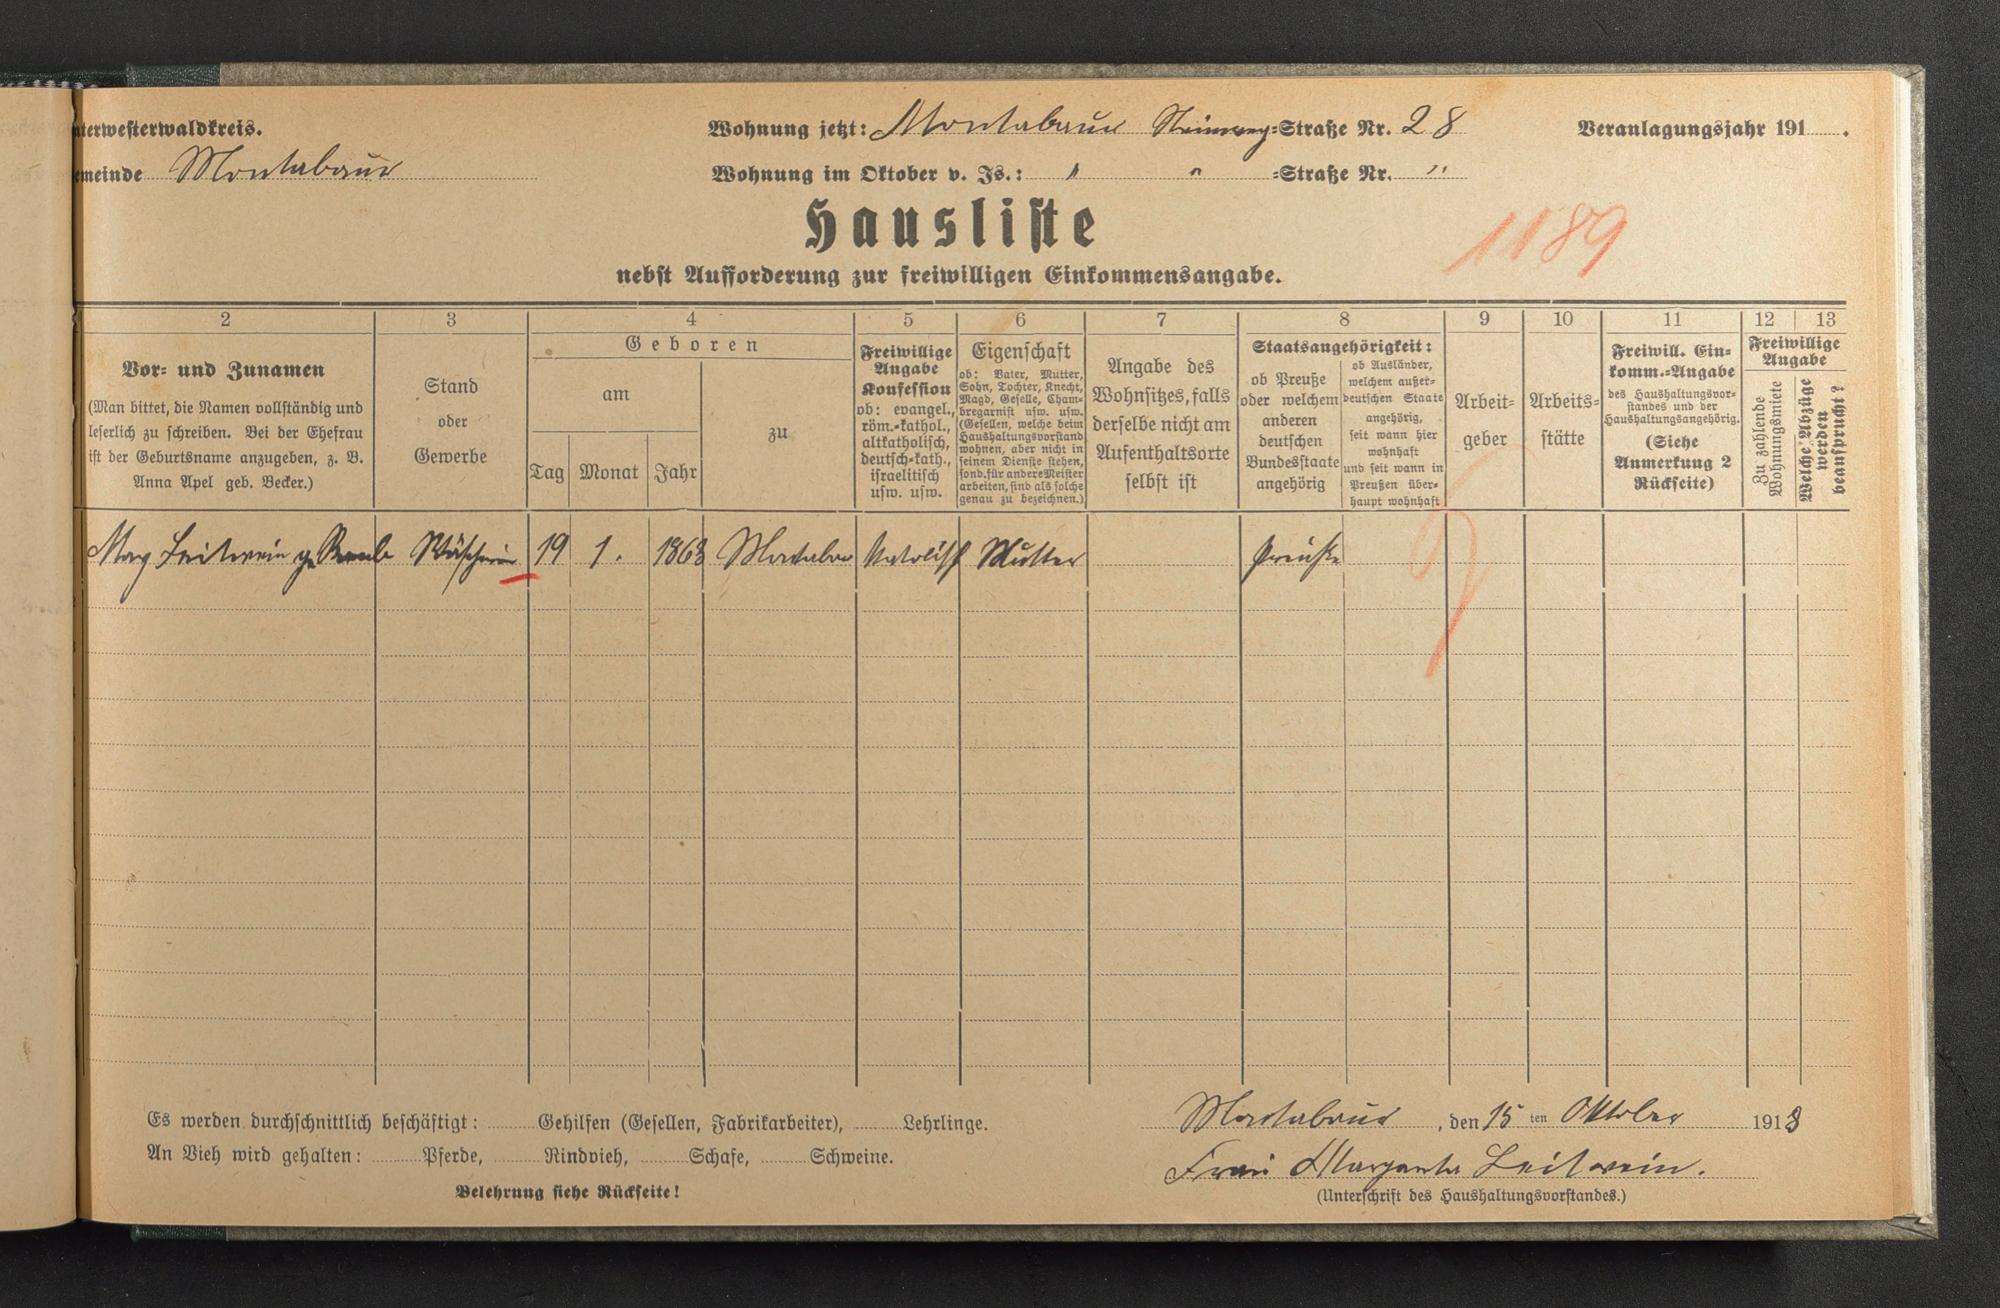 nterwesterwaldkreis.
emeinde Montabaur
Wohnung jetzt: Montabaur Steinweg-Straße Nr. 28
Wohnung im Oktober v. Js.: " " -Straße Nr. "
Veranlagungsjahr 191 .
Hausliste
1189
nebst Aufforderung zur freiwilligen Einkommensangabe.
2
Vor- und Zunamen
(Man bittet, die Namen vollständig und
leserlich zu schreiben. Bei der Ehefrau
ist der Geburtsname anzugeben, z. B.
Anna Apel geb. Becker.)
3
Stand
oder
Gewerbe
4
Geboren
am
Tag Monat Jahr
zu
5
Freiwillige
Angabe
Konfession
ob: evangel.,
röm.-kathol.,
altkatholisch,
deutsch-kath.,
israelitisch
usw. usw.
6
Eigenschaft
ob: Vater, Mutter,
Sohn, Tochter, Knecht,
Magd, Geselle, Cham-
bregarnist usw. usw.
(Gesellen, welche beim
Haushaltungsvorstand
wohnen, aber nicht in
seinem Dienste stehen,
sond. für andere Meister
arbeiten, sind als solche
genau zu bezeichnen.)
7
Angabe des
Wohnsitzes, falls
derselbe nicht am
Aufenthaltsorte
selbst ist
8
Staatsangehörigkeit:
ob Preuße
oder welchem
anderen
deutschen
Bundesstaate
angehörig
ob Ausländer,
welchem außer-
deutschen Staate
angehörig,
seit wann hier
wohnhaft
und seit wann in
Preußen über-
haupt wohnhaft
9
Arbeit-
geber
10
Arbeits-
stätte
11
Freiwill. Ein-
komm.-Angabe
des Haushaltungsvor-
standes und der
Haushaltungsangehörig.
(Siehe
Anmerkung 2
Rückseite)
12 13
Freiwillige
Angabe
Zu zahlende
Wohnungsmiete
Welche Abzüge
werden
beansprucht?
Marg Leitwein g. Raab Wäscherin 19 1. 1868 Montabaur Katolisch Mutter Preuße
Es werden durchschnittlich beschäftigt: Gehilfen (Gesellen, Fabrikarbeiter), Lehrlinge.
An Vieh wird gehalten: Pferde, Rindvieh, Schafe, Schweine.
Belehrung siehe Rückseite!
Montabaur, den 15 ten Oktober 1913
Frau Margareta Leitwein.
(Unterschrift des Haushaltungsvorstandes.)